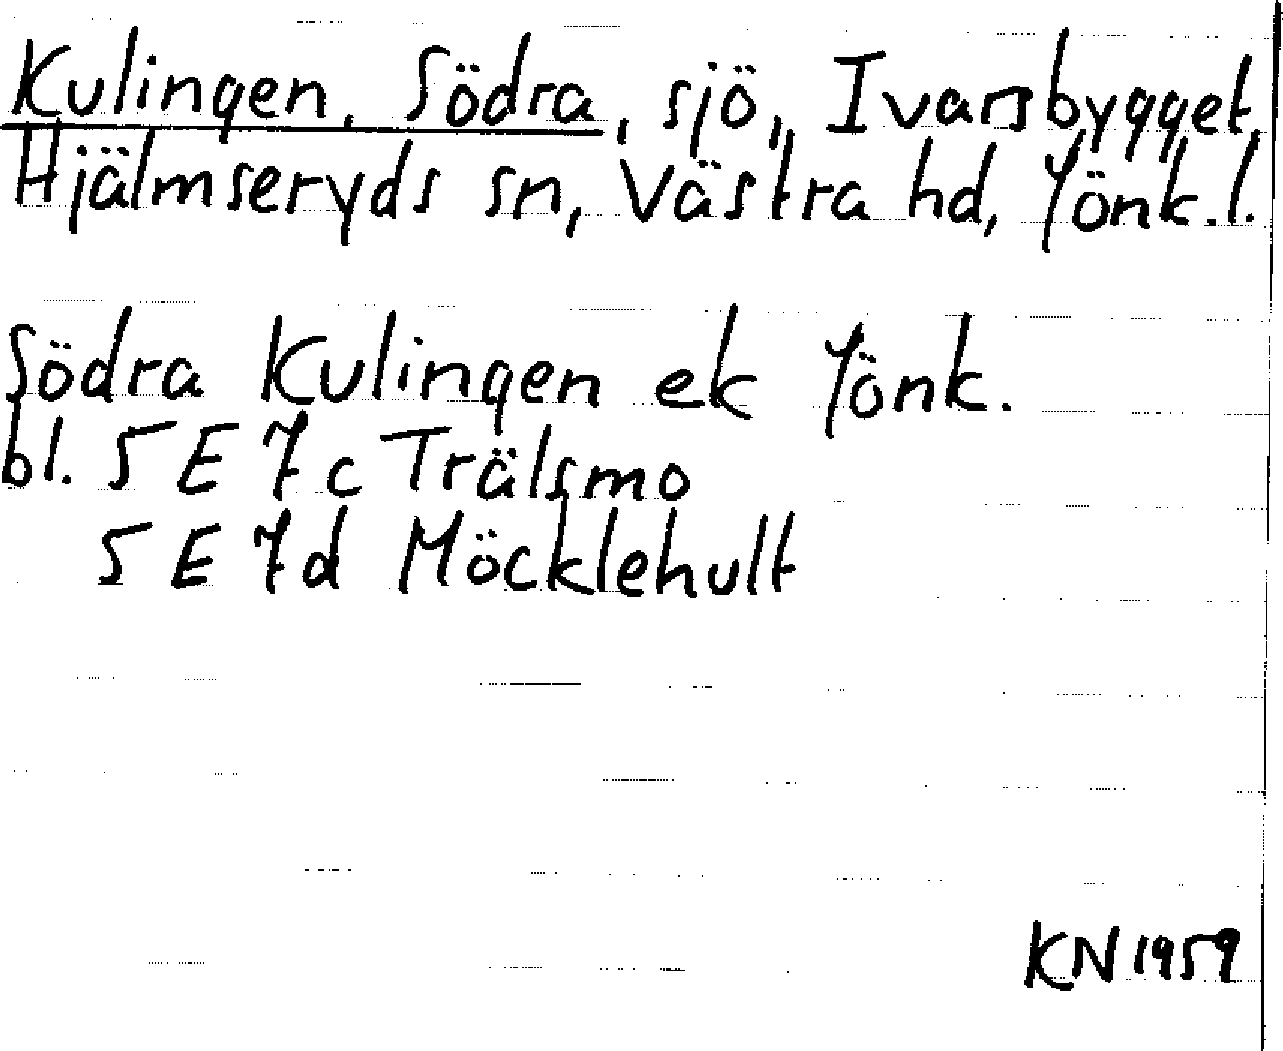 Kulingen, Södra, sjö, Ivarsbygget,
Hjälmseryds sn, Västra hd, Jönk.l.
Södra Kulingen ek Jönk.
bl. 5 E 7 c Trälsmo
5 E 7 d Möcklehult
KN 1959